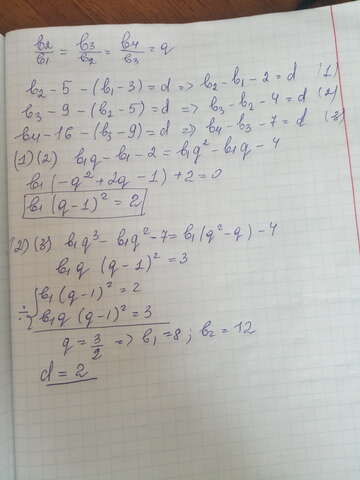 b2/b1 = b3/b2 = b4/b3 = q
b2 - 5 - (b1 - 3) = d => b2 - b1 - 2 = d (1)
b3 - 9 - (b2 - 5) = d => b3 - b2 - 4 = d (2)
b4 - 16 - (b3 - 9) = d => b4 - b3 - 7 = d (3)
(1)(2) b1q - b1 - 2 = b1q² - b1q - 4
b1(-q² + 2q - 1) + 2 = 0
b1(q - 1)² = 2
(2)(3) b1q³ - b1q² - 7 = b1(q² - q) - 4
b1q (q - 1)² = 3
÷ { b1(q - 1)² = 2
b1q (q - 1)² = 3
q = 3/2 => b1 = 8; b2 = 12
d = 2